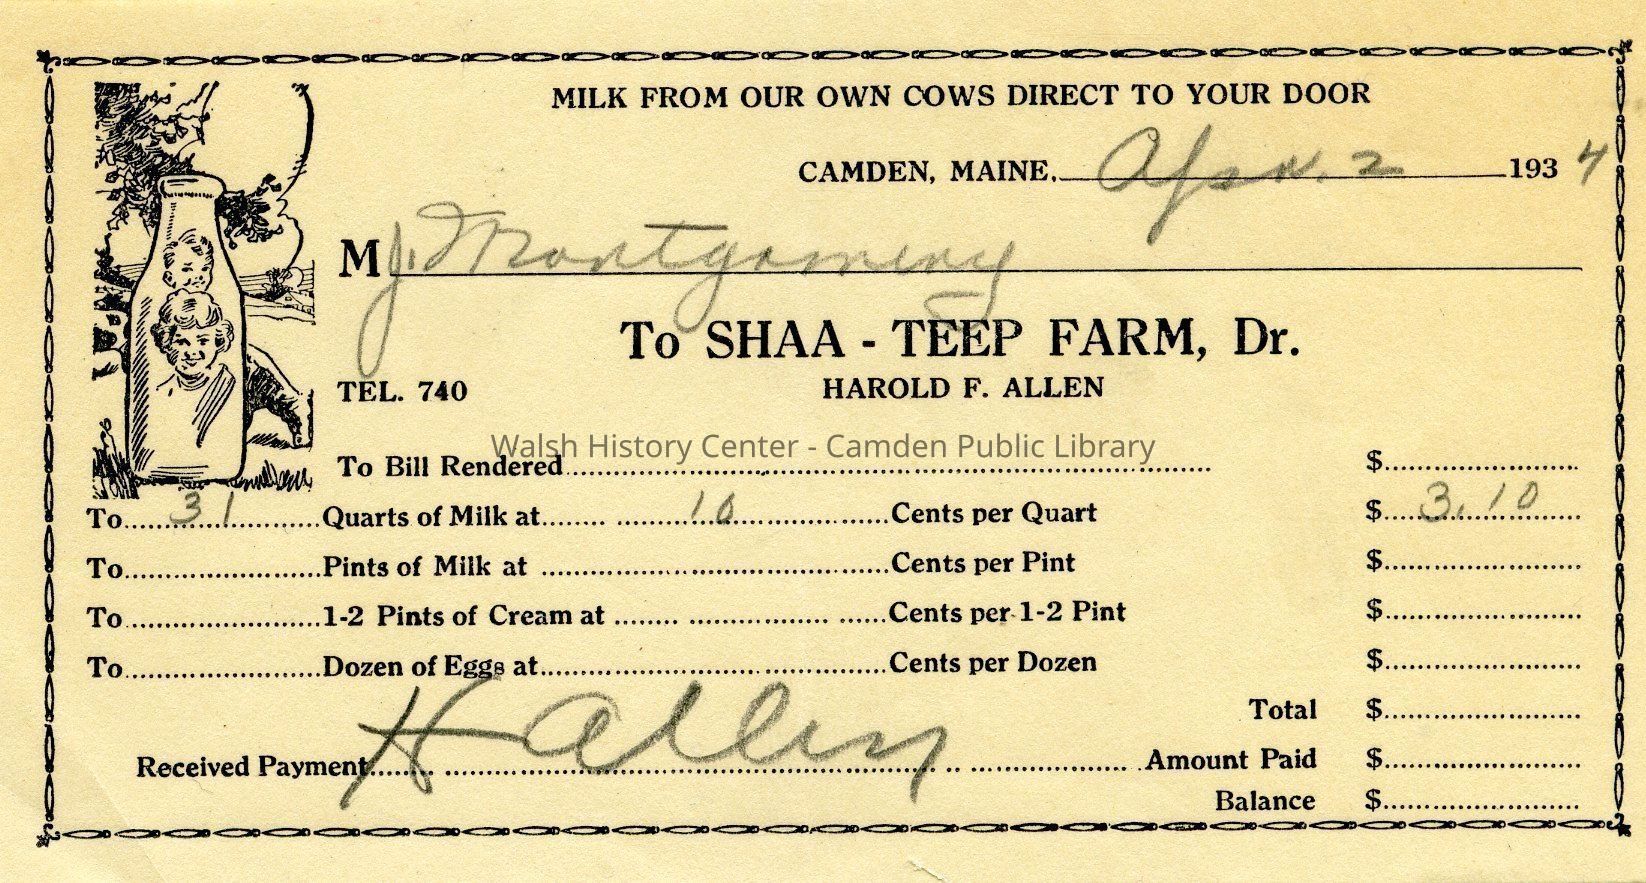 MILK FROM OUR OWN COWS DIRECT TO YOUR DOOR
CAMDEN, MAINE, Apr. 2 1934
M J. Montgomery
To SHAA - TEEP FARM, Dr.
TEL. 740 HAROLD F. ALLEN
Walsh History Center - Camden Public Library
To Bill Rendered $
To 31 Quarts of Milk at 10 Cents per Quart $ 3.10
To Pints of Milk at Cents per Pint $
To 1-2 Pints of Cream at Cents per 1-2 Pint $
To Dozen of Eggs at Cents per Dozen $
Total $
Received Payment H Allen Amount Paid $
Balance $